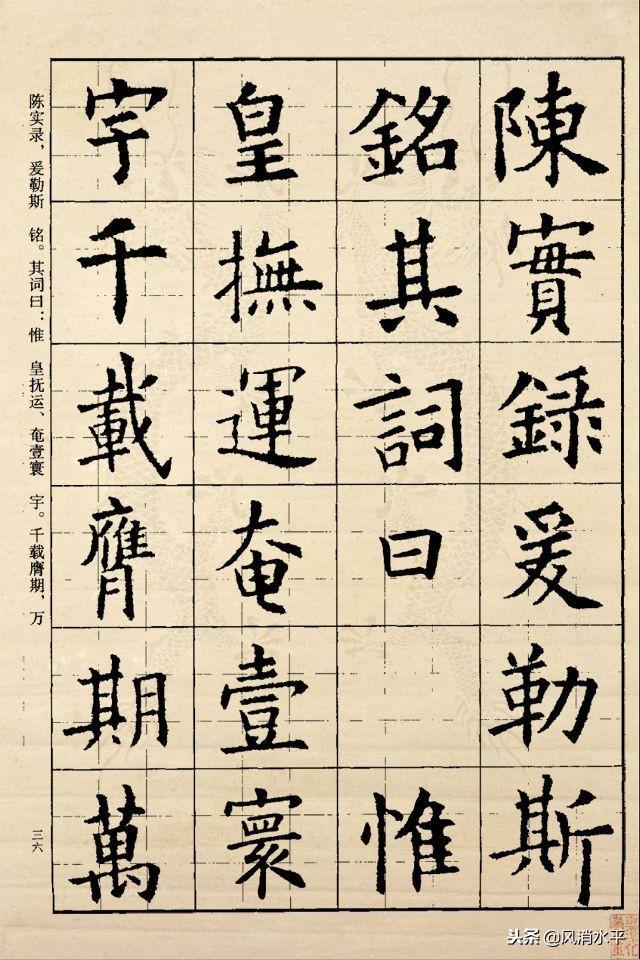 陳實録爰勒斯
銘其詞曰惟
皇撫運奄壹寰
宇千載膺期萬
陈实录，爰勒斯 铭。其词曰：惟 皇抚运、奄壹寰 宇。千载膺期，万
三六
头条 @风消水平